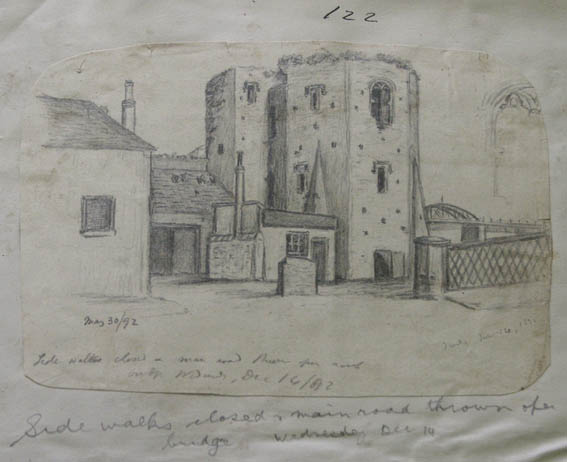 122
May 30/92
Side walks closed & main road thrown open
on Wednes, Dec 14/92
Side walks closed & main road thrown open
bridge Wednesday Dec 14